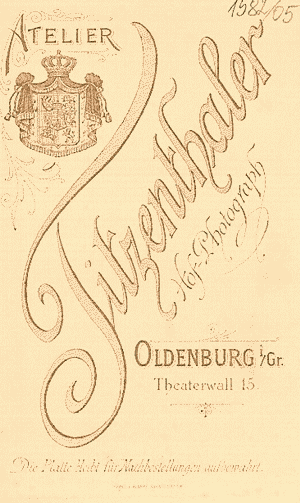 1582/05
ATELIER
Titzenthaler
Hof-Photograph
OLDENBURG i/Gr.
Theaterwall 15.
Die Platte bleibt für Nachbestellungen aufbewahrt.